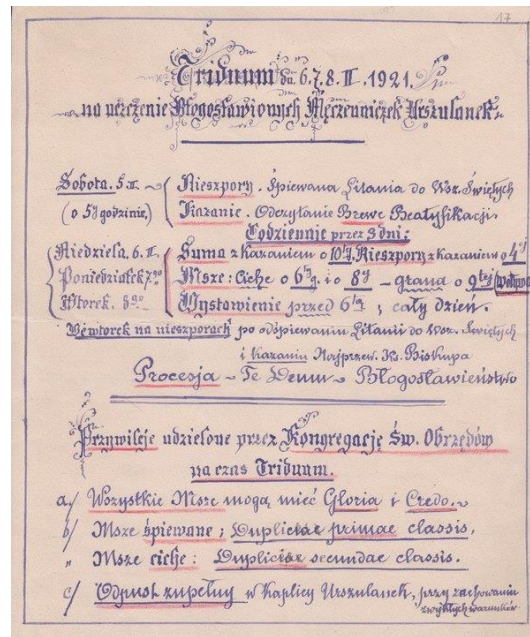 17
Triduum dn. 6. 7. 8. II. 1921.
na uczczenie Błogosławionych Męczenniczek Urszulanek
Sobota. 5 II. Nieszpory. Śpiewana Litania do Wsz. Świętych
(o 5ej godzinie,) Kazanie. Odczytanie Brewe Beatyfikacji.
Codziennie przez 3 dni:
Niedziela. 6. II. Suma z Kazaniem o 10tej. Nieszpory z Kazaniem o 4ej
Poniedziałek 7go Msze: Ciche o 6tej. i o 8ej – grana o 9tej (wotywa
Wtorek. 8go Wystawienie przed 6tą ; cały dzień.
We wtorek na nieszporach po odśpiewaniu Litanii do Wsz. Świętych
i Kazaniu Najprzew. Ks. Biskupa
Procesja – Te Deum – Błogosławieństwo
Przywileje udzielone przez Kongregację Św. Obrzędów
na czas Triduum.
a/ Wszystkie Msze mogą mieć Gloria i Credo.
b/ Msze śpiewane ; Duplicis primae classis,
" Msze ciche : Duplicis secundae classis.
c/ Odpust zupełny w Kaplicy Urszulanek, przy zachowaniu
zwykłych warunków